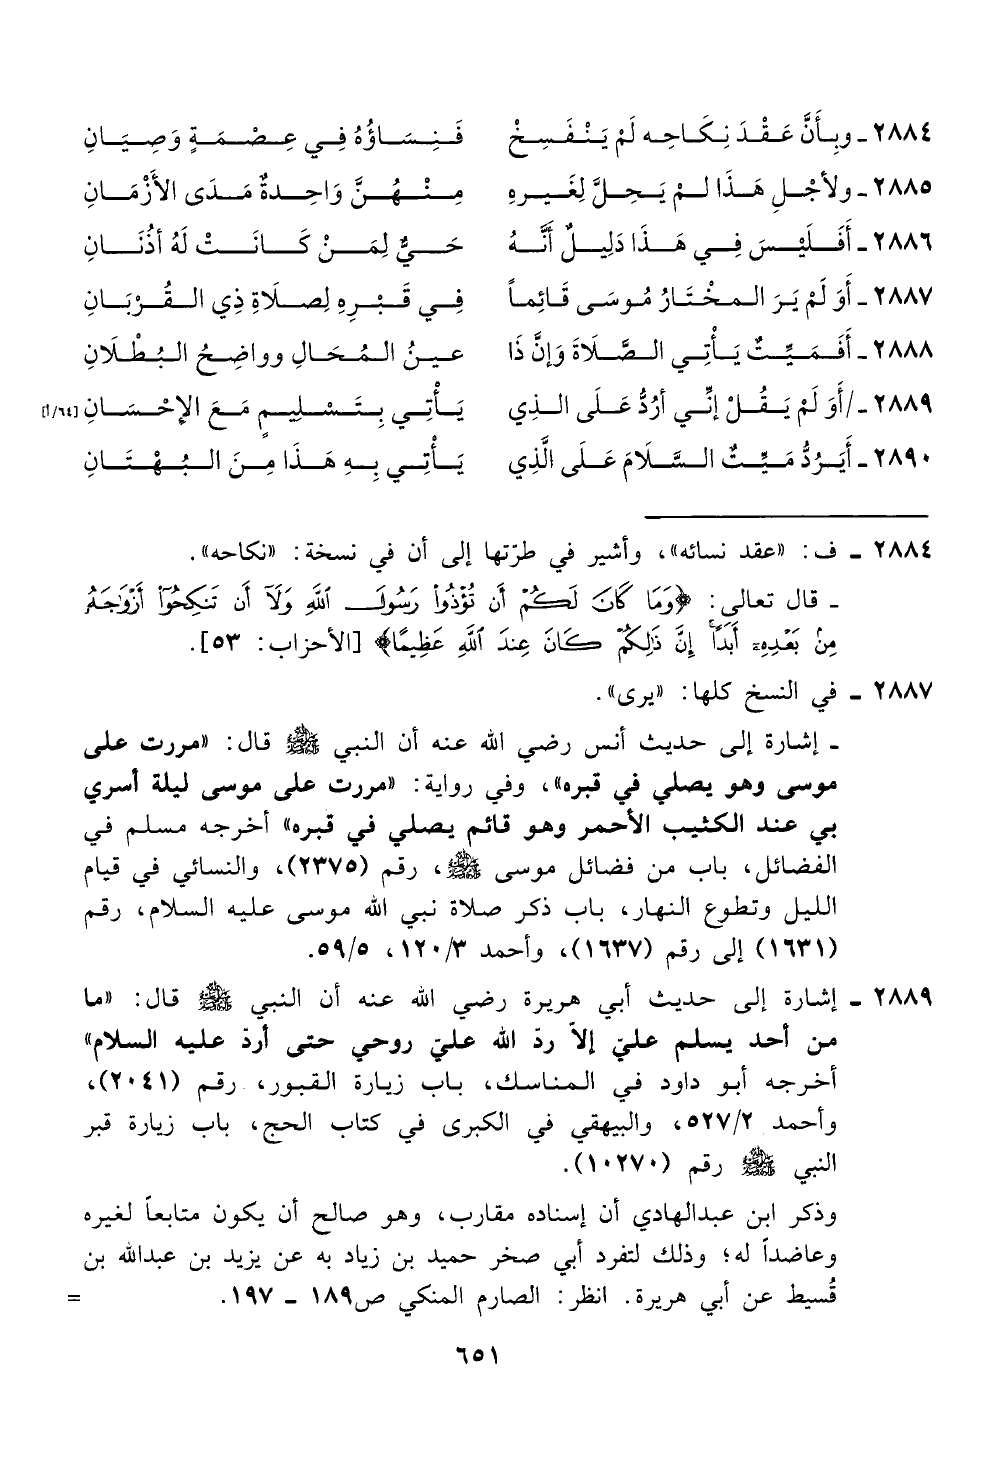 ٢٨٨٤ ـ وبِأَنَّ عَقْدَ نِكَاحِه لَمْ يَنْفَسِخْ فَنِسَاؤُهُ فِي عِصْمَةٍ وَصِيَانِ
٢٨٨٥ ـ ولأجْلِ هَذَا لمْ يَحِلَّ لِغَيرِهِ مِنْهُنَّ وَاحِدةٌ مَدَى الأَزْمَانِ
٢٨٨٦ ـ أَفَلَيْسَ فِي هَذَا دَلِيلٌ أَنَّهُ حَيٌّ لِمَنْ كَانَتْ لَهُ أذُنَانِ
٢٨٨٧ ـ أوَ لَمْ يَرَ المخْتَارُ مُوسَى قَائِماً فِي قَبْرِهِ لِصلَاةِ ذِي القُرْبَانِ
٢٨٨٨ ـ أَفَمَيِّتٌ يَأْتِي الصَّلَاةَ وَإنَّ ذَا عينُ المُحَالِ وواضِحُ البُطْلَانِ
٢٨٨٩ ـ/ أَوَ لَمْ يَقُلْ إنِّي أرُدُّ عَلَى الذِي يَأْتِي بِتَسْلِيمٍ مَعَ الإحْسَانِ [٦٤/أ]
٢٨٩٠ ـ أَيَرُدُّ مَيِّتٌ السَّلَامَ عَلَى الَّذِي يَأْتِي بِهِ هَذَا مِنَ البُهْتَانِ
٢٨٨٤ ـ ف: «عقد نسائه»، وأشير في طرّتها إلى أن في نسخة: «نكاحه».
ـ قال تعالى: ﴿وَمَا كَانَ لَكُمْ أَن تُؤْذُوا۟ رَسُولَ ٱللَّهِ وَلَآ أَن تَنكِحُوٓا۟ أَزْوَٰجَهُۥ
مِنۢ بَعْدِهِۦٓ أَبَدًا ۚ إِنَّ ذَٰلِكُمْ كَانَ عِندَ ٱللَّهِ عَظِيمًا﴾ [الأحزاب: ٥٣].
٢٨٨٧ ـ في النسخ كلها: «يرى».
ـ إشارة إلى حديث أنس رضي الله عنه أن النبي ﷺ قال: «مررت على
موسى وهو يصلي في قبره»، وفي رواية: «مررت على موسى ليلة أسري
بي عند الكثيب الأحمر وهو قائم يصلي في قبره» أخرجه مسلم في
الفضائل، باب من فضائل موسى ﷺ، رقم (٢٣٧٥)، والنسائي في قيام
الليل وتطوع النهار، باب ذكر صلاة نبي الله موسى عليه السلام، رقم
(١٦٣١) إلى رقم (١٦٣٧)، وأحمد ١٢٠/٣، ٥٩/٥.
٢٨٨٩ ـ إشارة إلى حديث أبي هريرة رضي الله عنه أن النبي ﷺ قال: «ما
من أحد يسلم عليّ إلاّ ردّ الله عليّ روحي حتى أردّ عليه السلام»
أخرجه أبو داود في المناسك، باب زيارة القبور، رقم (٢٠٤١)،
وأحمد ٥٢٧/٢، والبيهقي في الكبرى في كتاب الحج، باب زيارة قبر
النبي ﷺ رقم (١٠٢٧٠).
وذكر ابن عبدالهادي أن إسناده مقارب، وهو صالح أن يكون متابعاً لغيره
وعاضداً له؛ وذلك لتفرد أبي صخر حميد بن زياد به عن يزيد بن عبدالله بن
قُسيط عن أبي هريرة. انظر: الصارم المنكي ص١٨٩ ـ ١٩٧. =
٦٥١